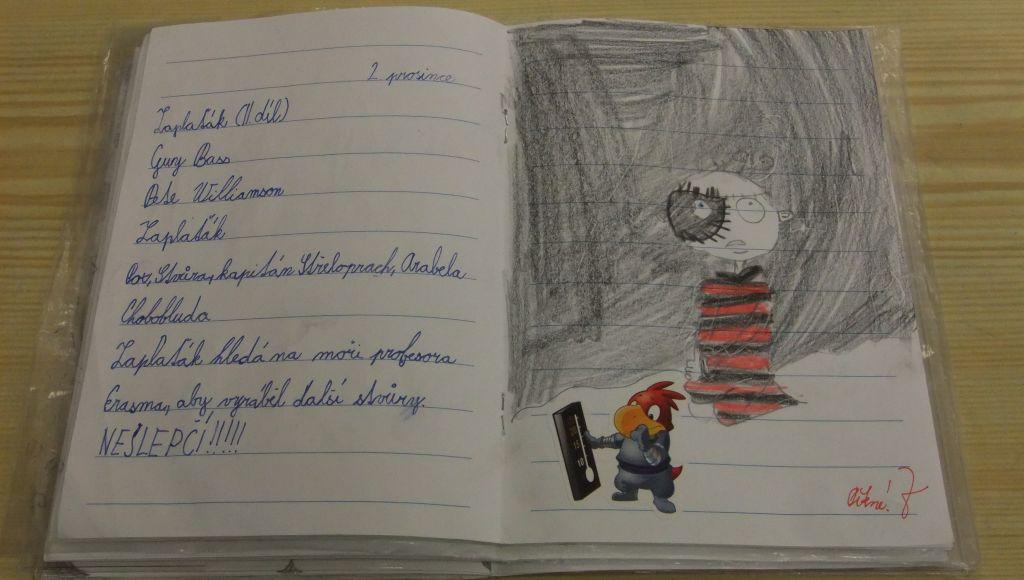 2. prosince
Zaplaťák (II díl)
Guy Bass
Pete Williamson
Zaplaťák
Cor, Stvůra, kapitán Střeloprach, Arabela
Chobobluda
Zaplaťák hledá na moři profesora
Erasma, aby vyráběl další stvůry.
NEJLEPČÍ!!!!!
10
Pěkné!